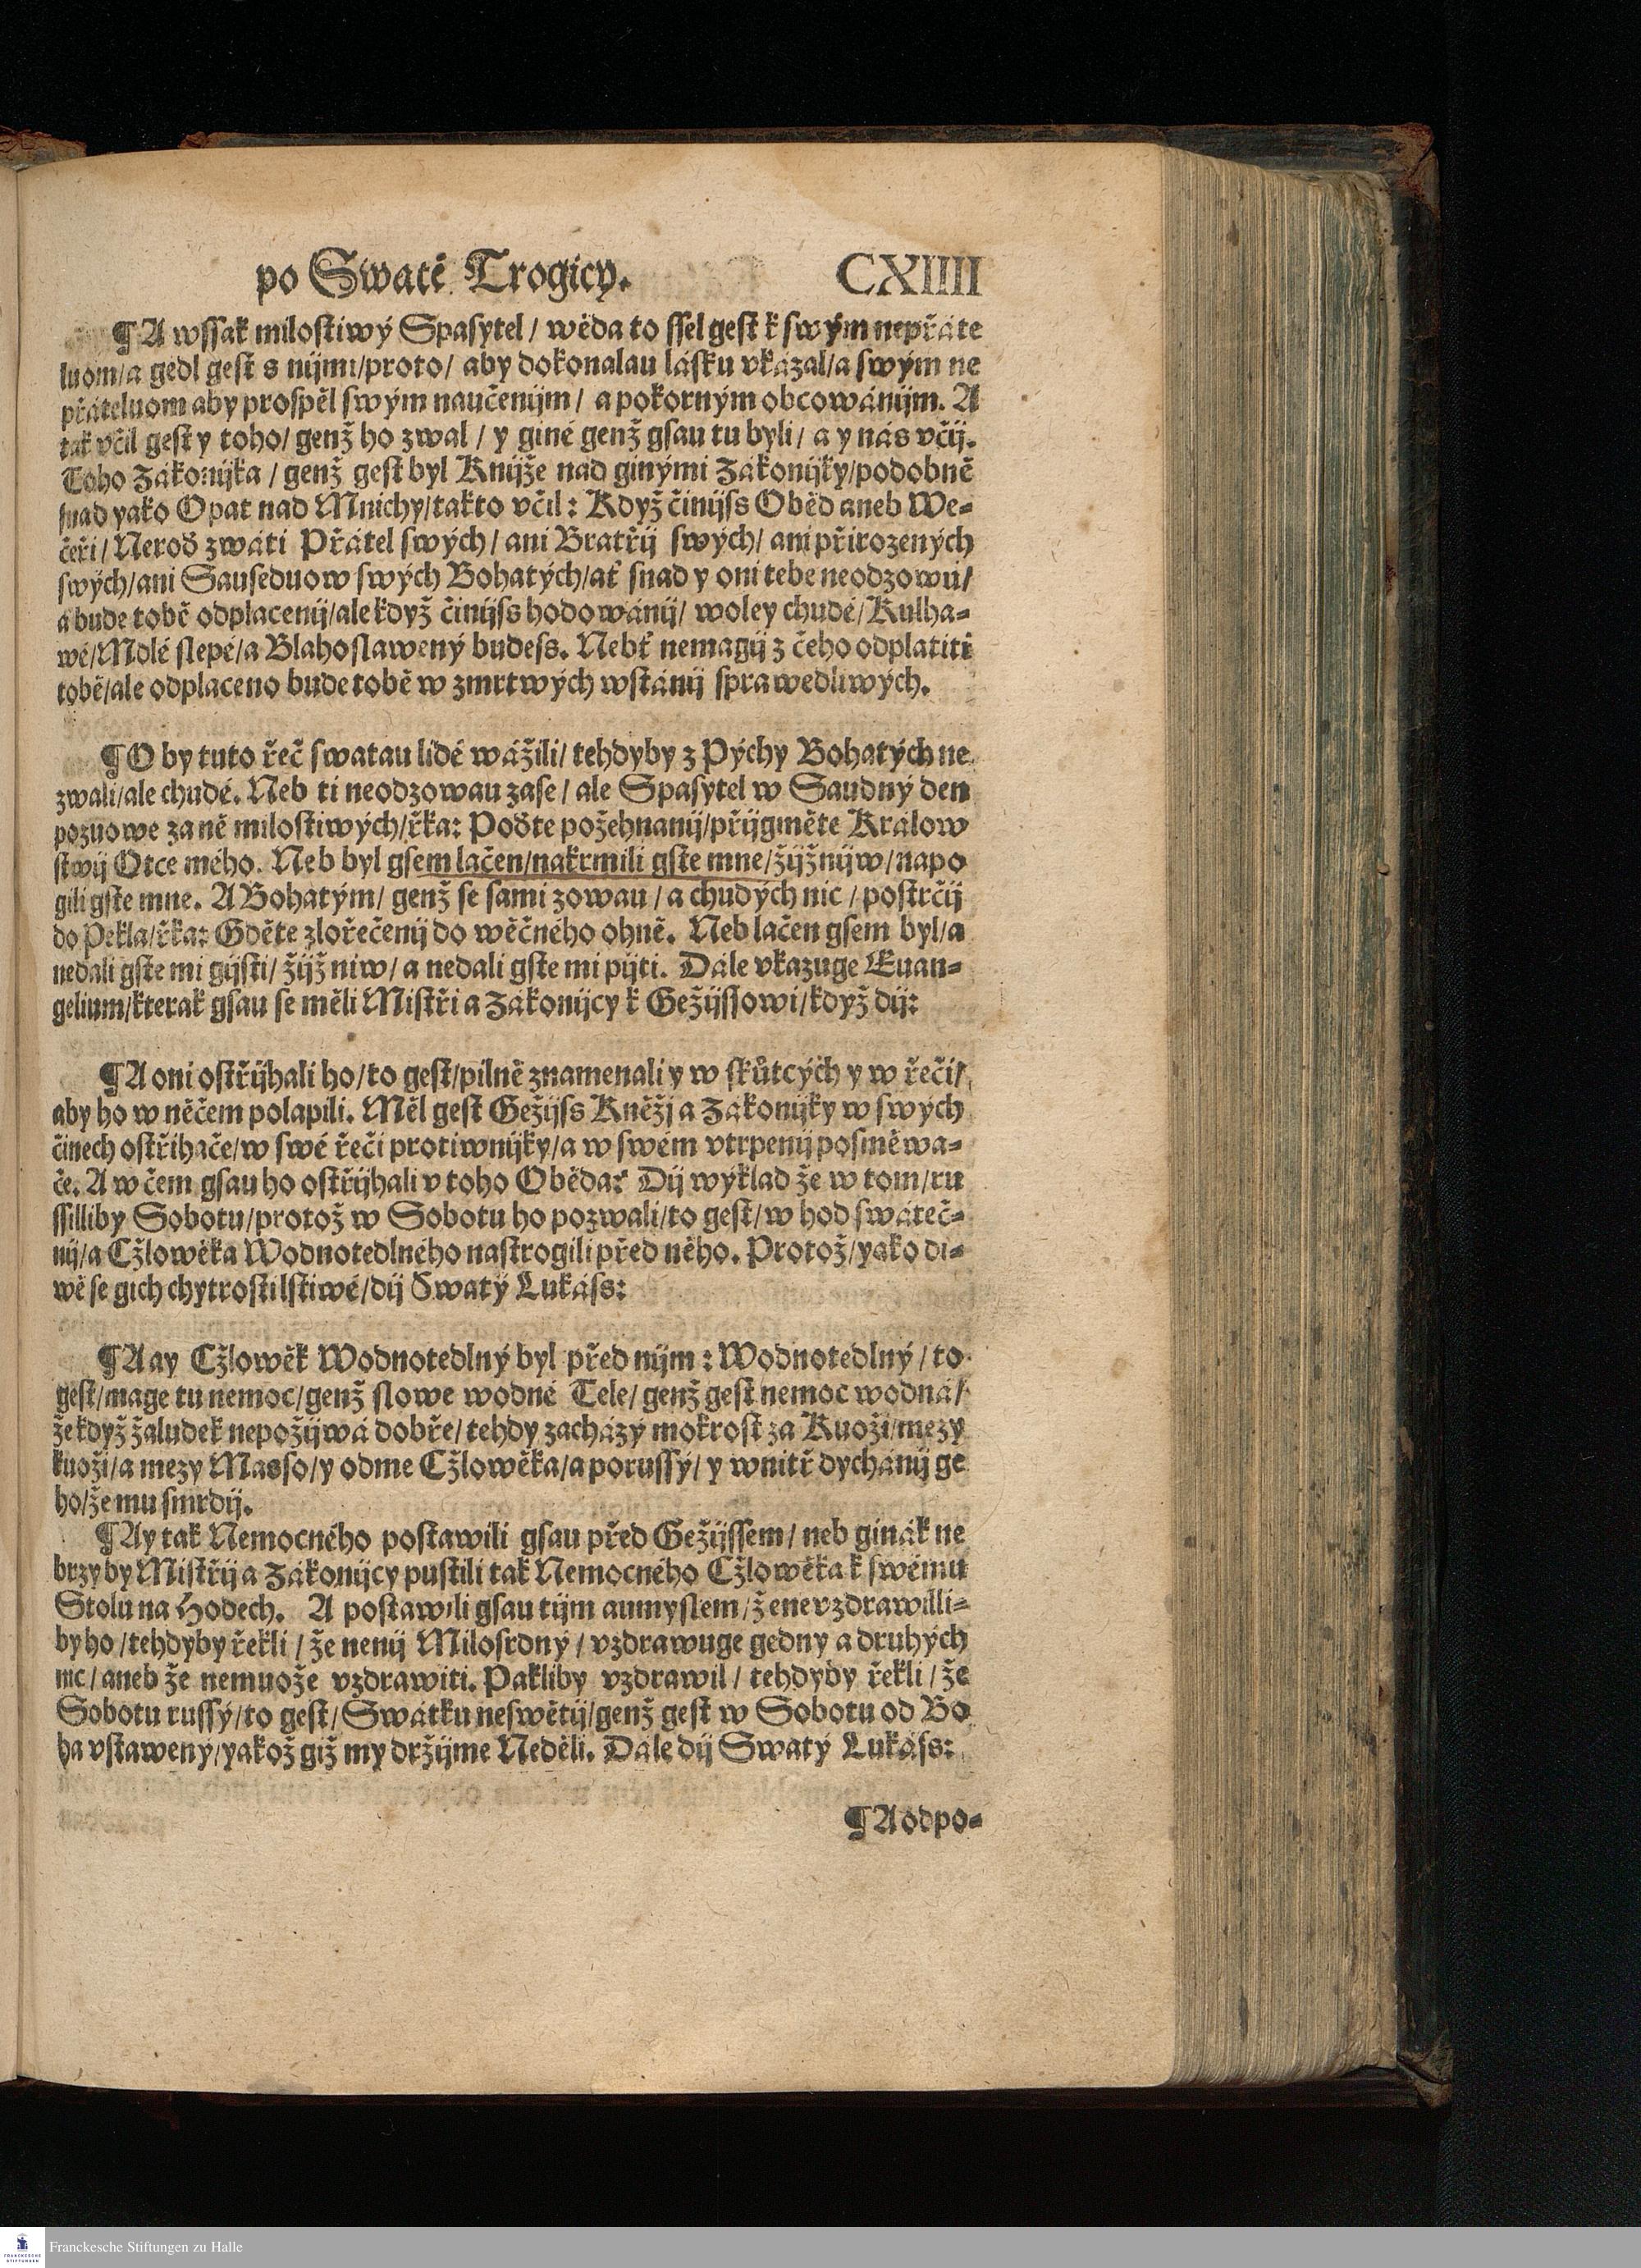 po Swaté Trogicy. CXIIII
¶A wssak milostiwý Spasytel / wěda to ssel gest k swým nepřáte
luom/a gedl gest s nijmi/proto/ aby dokonalau lásku vkázal/a swým ne
přáteluom aby prospěl swým naučenijm / a pokorným obcowánijm. A
tak včil gest y toho/ genž ho zwal / y giné genž gsau tu byli/ a y nás včij.
Toho Zákonijka / genž gest byl Knijže nad ginými Zákonijky/podobně
snad yako Opat nad Mnichy/takto včil: Když činijss Oběd aneb We-
čeři/ Neroď zwáti Přátel swých/ ani Bratřij swých/ ani přirozených
swých/ani Sauseduow swých Bohatých/ať snad y oni tebe neodzowú/
a bude tobě odplacenij/ale když činijss hodowánij/ woley chudé/Kulha-
wé/Mdlé slepé/a Blahoslawený budess. Nebť nemagij z čeho odplatiti
tobě/ale odplaceno bude tobě w zmrtwých wstánij sprawedliwých.
¶O by tuto řeč swatau lidé wážili/ tehdyby z Pýchy Bohatých ne
zwali/ale chudé. Neb ti neodzowau zase / ale Spasytel w Saudný den
pozuowe za ně milostiwých/řka: Poďte požehnanij/přijgměte Králow
stwij Otce mého. Neb byl gsem lačen/nakrmili gste mne/žijžnijw/napo
gili gste mne. A Bohatým/ genž se sami zowau / a chudých nic / postrčij
do Pekla/řka: Gděte zlořečenij do wěčného ohně. Neb lačen gsem byl/a
nedali gste mi gijsti/ žijžniw/ a nedali gste mi pijti. Dále vkazuge Euan-
gelium/kterak gsau se měli Mistři a Zákonijcy k Gežijssowi/když dij:
¶A oni ostřijhali ho/to gest/pilně znamenali y w skůtcých y w řeči/
aby ho w něčem polapili. Měl gest Gežijss Kněžj a Zákonijky w swých
činech ostřihače/w swé řeči protiwnijky/a w swém vtrpenij posměwa-
če. A w čem gsau ho ostřijhali v toho Oběda? Dij wýklad že w tom/ru
ssilliby Sobotu/protož w Sobotu ho pozwali/to gest/w hod swáteč-
nij/a Cžlowěka Wodnotedlného nastrogili před něho. Protož/yako di-
wě se gich chytrosti lstiwé/dij Swatý Lukáss:
¶A ay Cžlowěk Wodnotedlný byl před nijm: Wodnotedlný / to
gest/mage tu nemoc/genž slowe wodné Tele/ genž gest nemoc wodná/
že když žaludek nepožijwá dobře/ tehdy zacházý mokrost za Kuoži/mezy
kuoži/a mezy Masso/y odme Cžlowěka/a porussý/ y wnitř dychánij ge
ho/že mu smrdij.
¶Ay tak Nemocného postawili gsau před Gežijssem/ neb ginák ne
brzy by Mistřij a Zákonijcy pustili tak Nemocného Cžlowěka k swému
Stolu na Hodech. A postawili gsau tijm aumyslem/že nevzdrawilli-
by ho /tehdyby řekli / že nenij Milosrdný / vzdrawuge gedny a druhých
nic/ aneb že nemuože vzdrawiti. Pakliby vzdrawil / tehdyby řekli / že
Sobotu russý/to gest/ Swátku neswětij/genž gest w Sobotu od Bo
ha vstawený/yakož giž my držijme Neděli. Dále dij Swatý Lukáss:
¶A odpo-
Franckesche Stiftungen zu Halle